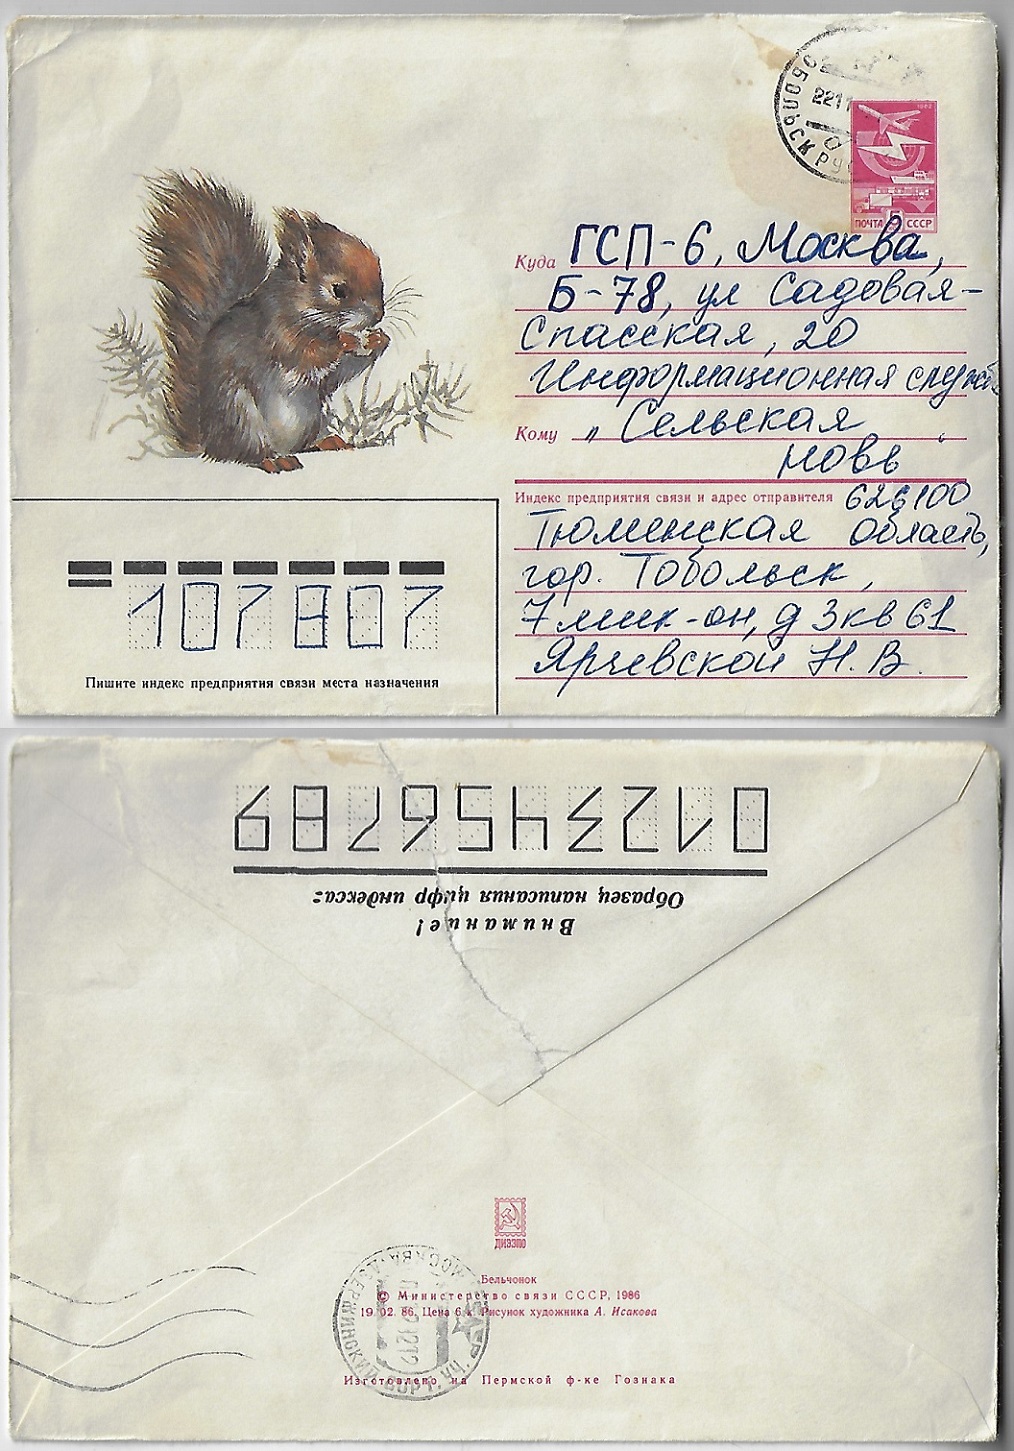 ОБОЛЬСК РУ
2211
1983
ПОЧТА 5 СССР
Куда ГСП-6, Москва,
Б-78, ул Садовая-
Спасская, 20
Информационная служб
Кому „Сельская
новь
Индекс предприятия связи и адрес отправителя 626100
Тюменская область,
гор. Тобольск,
7 мик-он, д 3 кв 61
Ярчевской Н. В.
107807
Пишите индекс предприятия связи места назначения
Внимание!
Образец написания цифр индекса:
0123456789
ДИЭЗПО
Бельчонок
© Министерство связи СССР, 1986
19.02.86. Цена 6 к. Рисунок художника А. Исакова
МОСКВА ДЗЕРЖИНСКИЙ СОРТ. УЧ.
Изготовлено на Пермской ф-ке Гознака